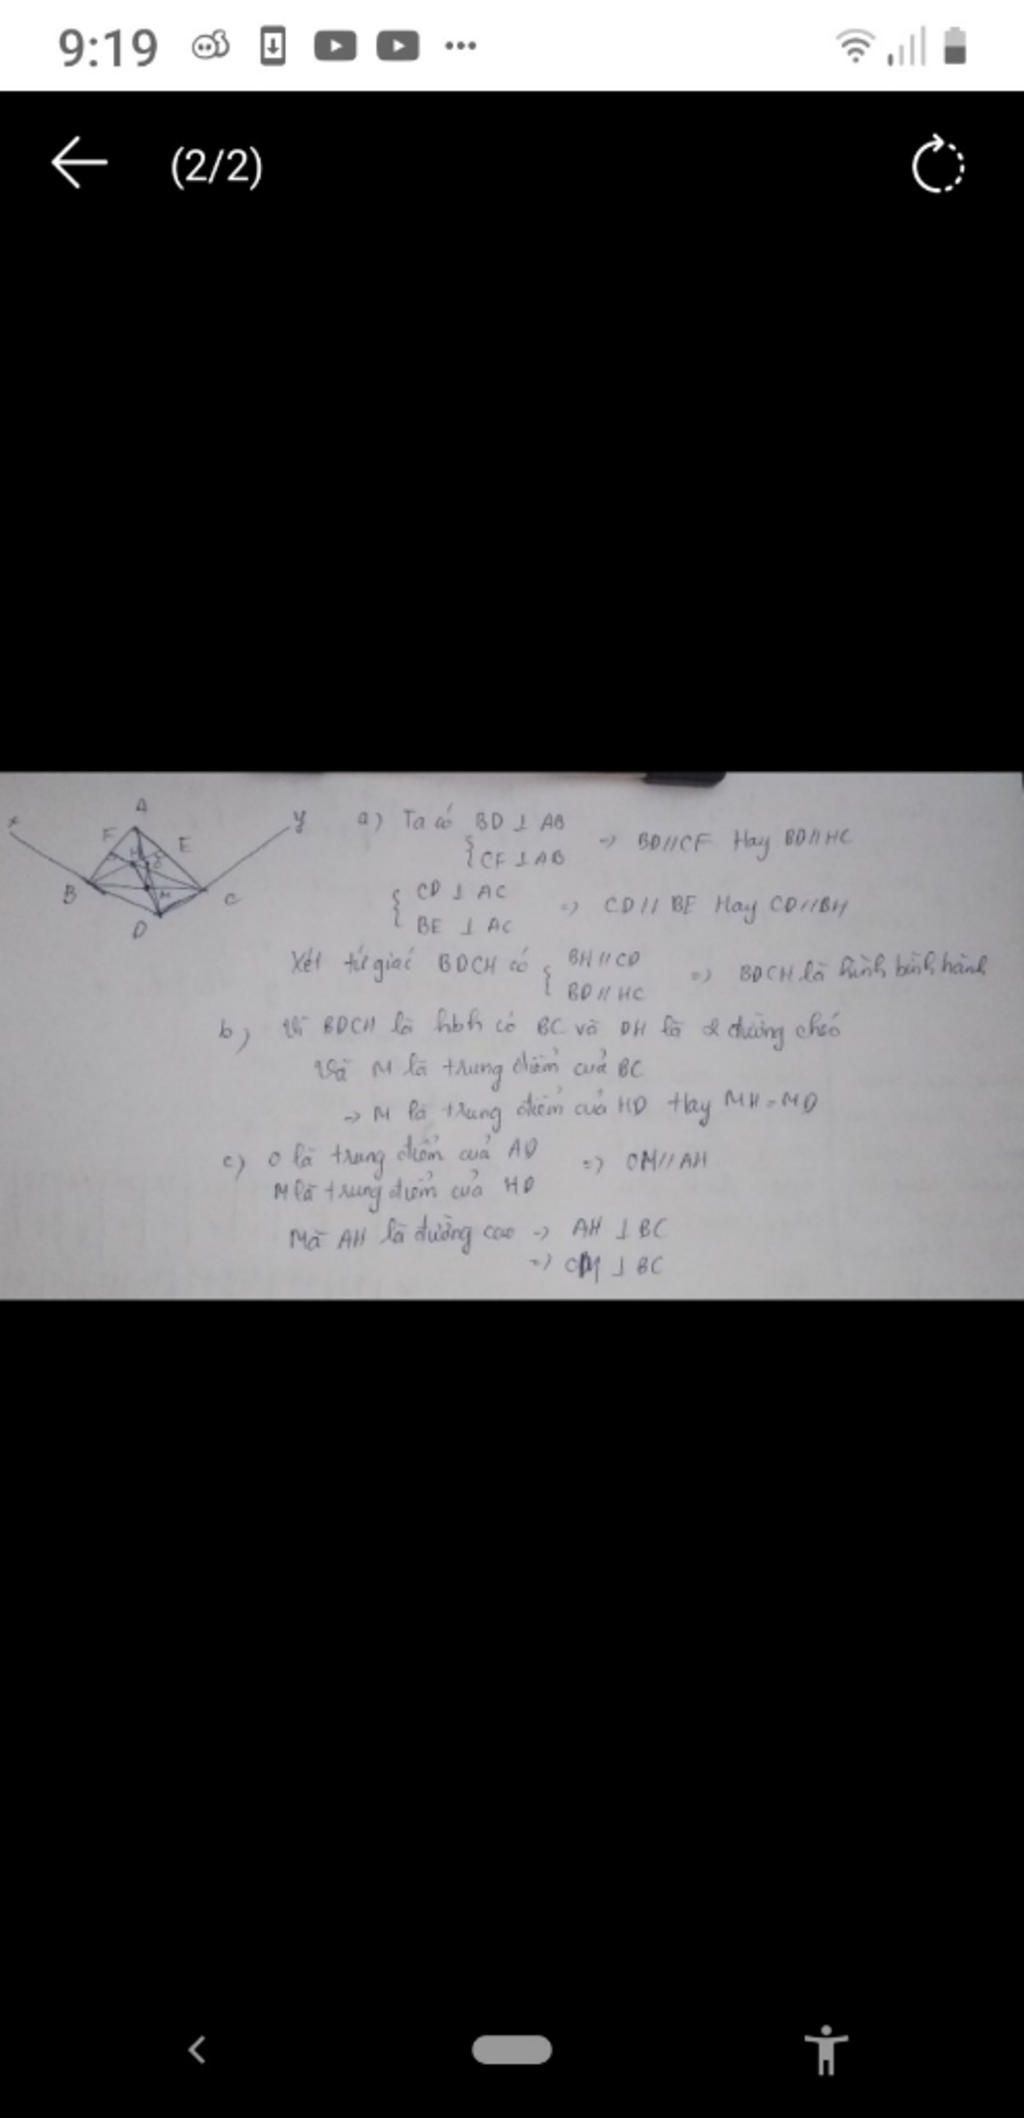 9:19
(2/2)
A
x
y
F
E
H
B
M
C
D
a) Ta có BD ⊥ AB
CF ⊥ AB
=> BD//CF Hay BD//HC
CD ⊥ AC
BE ⊥ AC
=> CD// BE Hay CD//BH
Xét tứ giác BDCH có
BH//CD
BD//HC
=> BDCH là hình bình hành
b) Vì BDCH là hbh có BC và DH là 2 đường chéo
Và M là trung điểm của BC
=> M là trung điểm của HD Hay MH=MD
c) O là trung điểm của AD
M là trung điểm của HD
=> OM//AH
Mà AH là đường cao => AH ⊥ BC
=> OM ⊥ BC